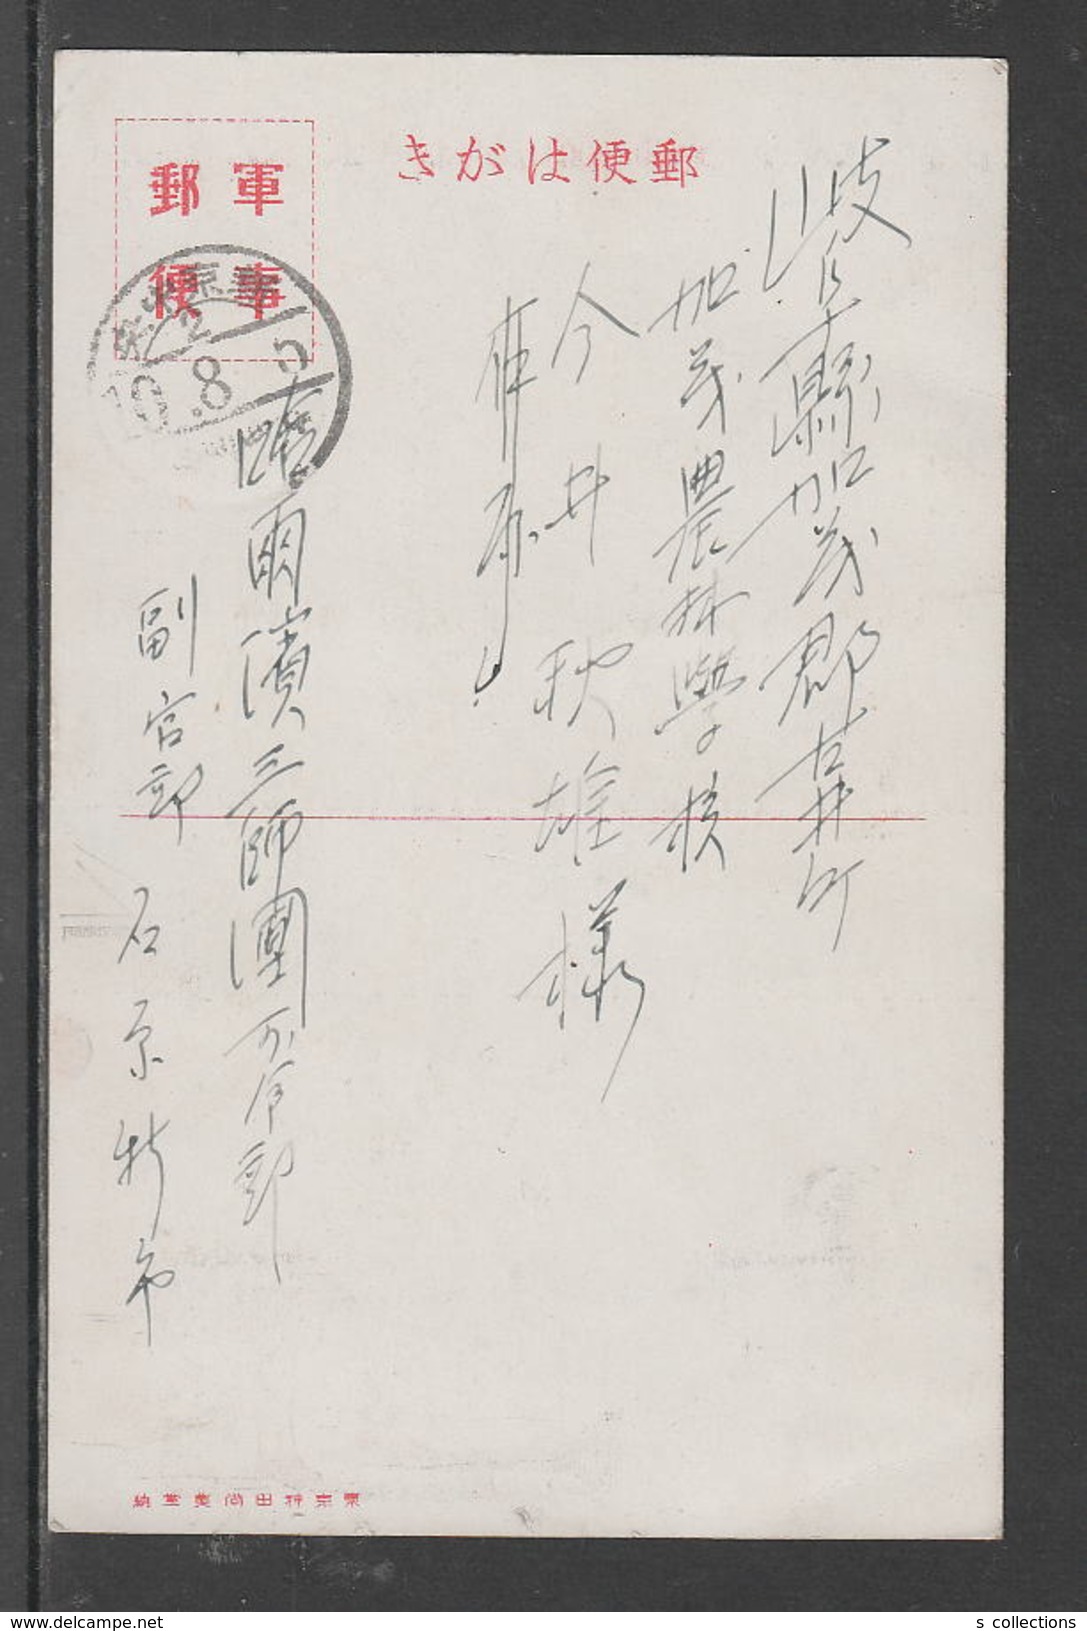 郵便はがき
軍事
郵便
岐阜縣加茂郡古井町
加茂農林學校
今井秋雄様
哈爾濱三師團司令部
副官部 石原
9.8.5
東京神田尚美堂納
s collections